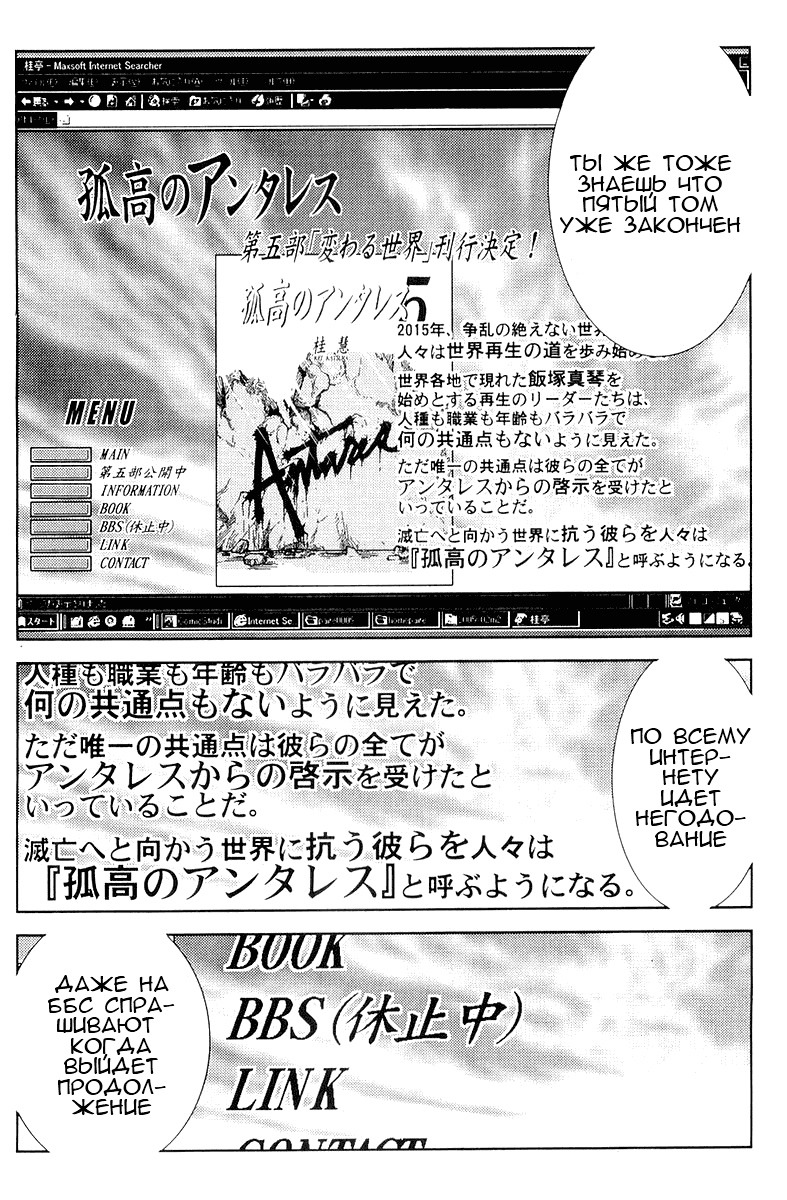 桂亭 - Maxsoft Internet Searcher
ТЫ ЖЕ ТОЖЕ
ЗНАЕШЬ ЧТО
ПЯТЫЙ ТОМ
УЖЕ ЗАКОНЧЕН
孤高のアンタレス
第五部「変わる世界」刊行決定！
孤高のアンタレス 5
桂 慧
Antares
2015年、争乱の絶えない世
人々は世界再生の道を歩み始め
世界各地で現れた飯塚真琴を
始めとする再生のリーダーたちは、
人種も職業も年齢もバラバラで
何の共通点もないように見えた。
ただ唯一の共通点は彼らの全てが
アンタレスからの啓示を受けたと
いっていることだ。
滅亡へと向かう世界に抗う彼らを人々は
『孤高のアンタレス』と呼ぶようになる。
MENU
MAIN
第五部公開中
INFORMATION
BOOK
BBS(休止中)
LINK
CONTACT
スタート
Internet Se
桂亭
人種も職業も年齢もバラバラで
何の共通点もないように見えた。
ただ唯一の共通点は彼らの全てが
アンタレスからの啓示を受けたと
いっていることだ。
滅亡へと向かう世界に抗う彼らを人々は
『孤高のアンタレス』と呼ぶようになる。
ПО ВСЕМУ
ИНТЕР-
НЕТУ
ИДЕТ
НЕГОДО-
ВАНИЕ
ДАЖЕ НА
ББС СПРА-
ШИВАЮТ
КОГДА
ВЫЙДЕТ
ПРОДОЛ-
ЖЕНИЕ
BOOK
BBS(休止中)
LINK
CONTACT